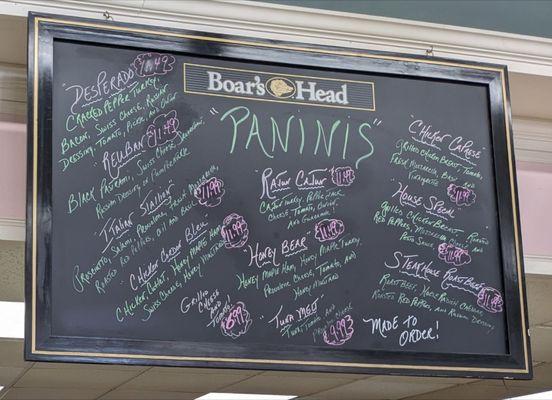 Boar's Head
"PANINIS"
"DESPERADO" 11.49
CRACKED PEPPER TURKEY,
BACON, SWISS CHEESE, RUSSIAN
DRESSING, TOMATO, PICKLE, AND ONION
"REUBAN" 11.49
BLACK PASTRAMI, SWISS CHEESE,
RUSSIAN DRESSING ON PUMPERNICKLE
"ITALIAN STALLION" 11.99
PROSCIUTTO, SALAMI, PEPPERONI, FRESH MOZZARELLA,
ROASTED RED PEPPERS, OIL AND BASIL
"CHICKEN CORDON BLEU" 11.49
CHICKEN CUTLET, HONEY MAPLE HAM,
SWISS CHEESE, HONEY MUSTARD
GRILLED
CHEESE
AND
TOMATO 8.99
"RAGIN' CAJUN" 11.49
CAJUN TURKEY, PEPPER JACK
CHEESE, TOMATO, ONION,
AND
"HONEY BEAR" 11.49
HONEY MAPLE HAM, MAPLE TURKEY,
PROVOLONE CHEESE, TOMATO, AND
HONEY MUSTARD
"TUNA MELT"
TUNA, TOMATO, AND
9.99
"CHICKEN CAPRESE"
GRILLED CHICKEN BREAST, TOMATO,
FRESH MOZZARELLA, BASIL, AND
VINAIGRETTE 11.49
"HOUSE SPECIAL"
GRILLED CHICKEN BREAST, ROASTED
RED PEPPERS, MOZZARELLA, AND
PESTO SAUCE 11.49
"STEAKHOUSE ROAST BEEF"
ROAST BEEF, CHEDDAR, 11.99
ROASTED RED PEPPERS, AND RUSSIAN DRESSING
MADE TO
ORDER!